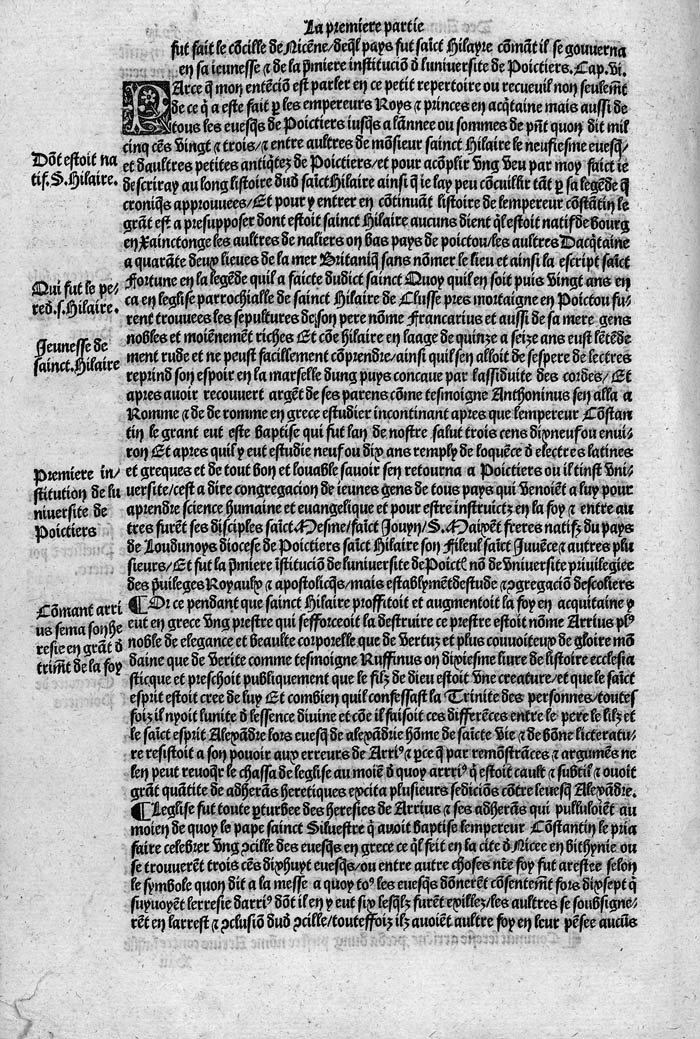 La premiere partie
fut fait le cõcille de Nicène/deq̃l pays fut saĩct Hilayre cõmãt il se gouverna
en sa ieunesse ⁊ de la p̃miere instituciõ d̃ luniversite de Poictiers. Cap. vi.
PArce q̃ mon entẽciõ est parler en ce petit repertoire ou recueil non seulemẽt
de ce q̃ a este fait p̱ les empereurs Roys ⁊ princes en acq̃taine mais aussi de
tous les euesq̃s de Poictiers iusq̃s a lãnee ou sommes de p̃nt quon dit mil
cinq cẽs vingt ⁊ trois/⁊ entre aultres de mõsieur sainct Hilaire le neufiesme euesq̃/
Dõt estoit na
tif. S. Hilaire.
et daultres petites antiq̃tez de Poictiers/et pour acõplir vng veu par moy faict ie
descriray au long listoire dud̃ saĩct Hilaire ainsi q̃ ie lay peu cõcuillir tãt p̱ sa legẽde q̃
croniq̃s approuuees/Et pour y entrer en cõtinuãt listoire de lempereur cõstãtin le
grãt est a presupposer dont estoit sainct Hilaire aucuns dient q̃l estoit natif de bourg
en Xainctonge les aultres de naliers on bas pays de poictou/les aultres Dacq̃taine
a quarãte deux lieues de la mer Britaniq̃ sans nõmer le lieu et ainsi la escript saĩct
Fortune en la legẽde quil a faicte dudict sainct Quoy quil en soit puis vingt ans en
Qui fut le pe/
re d̃. s. Hilaire.
ca en leglise parrochialle de sainct Hilaire de Clusse pres mortaigne en Poictou fu/
rent trouuees les sepultures de son pere nõme Francarius et aussi de sa mere gens
nobles et moiẽnemẽt riches Et cõe hilaire en laage de quinze a seize ans eust lẽtẽde
Jeunesse de
sainct. Hilaire
ment rude et ne peust facillement cõprendre/ainsi quil sen alloit de sespere de lectres
reprind son espoir en la marselle dung puys concaue par lassiduite des cordes/Et
apres auoir recouvert argẽt de ses parens cõme tesmoigne Anthoninus sen alla a
Romme ⁊ de de romme en grece estudier incontinant apres que lempereur Cõstan
tin le grant eut este baptise qui fut lan de nostre salut trois cens dixneuf ou envi/
ron Et apres quil y eut estudie neuf ou dix ans remply de loquẽce d̃ lectres latines
Premiere in/
stitution de lu
niuersite de
Poictiers
et greques et de tout bon et louable sauoir sen retourna a Poictiers ou il tinst vni/
uersite/cest a dire congregacion de ieunes gens de tous pays qui venoiẽt a luy pour
aprendre science humaine et euangelique et pour estre instruictz en la foy ⁊ entre au
tres furẽt ses disciples saĩct Mesme/saĩct Jouyn/S. Maixẽt freres natifz du pays
de Loudunoys diocese de Poictiers saĩct Hilaire son Fileul saĩct Juuẽce ⁊ autres plu
sieurs/Et fut la p̃miere ĩstituciõ de luniversite de Poict̃ nõ de vniuersite priuilegiee
des p̃uileges Royaulx ⁊ apostolicq̃s/mais establymẽt destude ⁊ ꝯgregaciõ descoliers
Cõmant arri
us sema son he
resie en grãt d̃
trimẽt de la foy
¶Or ce pendant que sainct Hilaire proffitoit et augmentoit la foy en acquitaine y
eut en grece vng prestre qui sefforceoit la destruire ce prestre estoit nõme Arrius plꝰ
noble de elegance et beaulte corporelle que de vertuz et plus couuoiteux de gloire mõ
daine que de verite comme tesmoigne Ruffinus on dixiesme liure de listoire ecclesia
sticque et preschoit publiquement que le filz de dieu estoit vne creature/et que le saĩct
esprit estoit cree de luy Et combien quil confessast la Trinite des personnes/toutes
foiz il nyoit lunite d̃ lessence diuine et cõe il faisoit ces differẽces entre le pere le filz et
le saĩct esprit Alexãdre lors euesq̃ de alexãdrie hõme de saĩcte vie ⁊ de bõne licteratu/
re resistoit a son pouoir aux erreurs de Arriꝰ ⁊ p̱ce q̃ par remõstrãces ⁊ argumẽs ne
len peut reuoq̃r le chassa de leglise au moiẽ d̃ quoy arriꝰ q̃ estoit cault ⁊ subtil ⁊ auoit
grãt quãtite de adherãs heretiques excita plusieurs sediciõs cõtre leuesq̃ Alexãdre.
¶Leglise fut toute p̱turbee des heresies de Arrius ⁊ ses adherãs qui pulluloiẽt au
moien de quoy le pape sainct Siluestre q̃ avoit baptise lempereur Cõstantin le pria
faire celebrer vng ꝯcille des euesq̃s en grece ce q̃l feit en la cite d̃ Nicee en bithynie ou
se trouuerẽt trois cẽs dixhuyt euesq̃s/ou entre autre choses nr̃e foy fut arestee selon
le symbole quon dit a la messe a quoy toꝰ les euesq̃s dõnerẽt cõsentemẽt fors dixsept q̃
suyuoyẽt lerresie darriꝰ dõt il en y eut six lesq̃lz furẽt exillez/les aultres se soubsigne/
rẽt en larrest ⁊ ꝯclusiõ dud̃ ꝯcille/touteffoiz ilz avoiẽt aultre foy en leur pẽsee aucũs